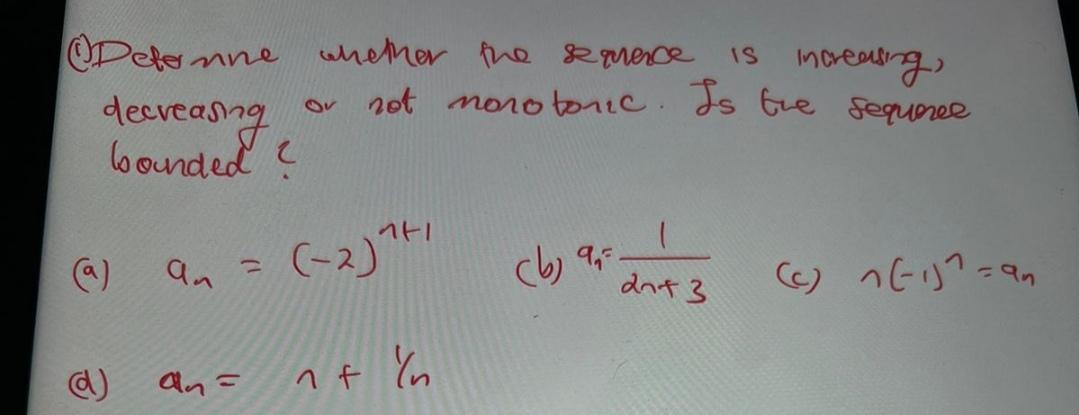 ① Determine whether the sequence is increasing,
decreasing or not monotonic. Is the sequence
bounded ?
(a) aₙ = (-2)ⁿ⁺¹ (b) aₙ = 1/(2n+3) (c) n(-1)ⁿ = aₙ
(d) aₙ = n + 1/n